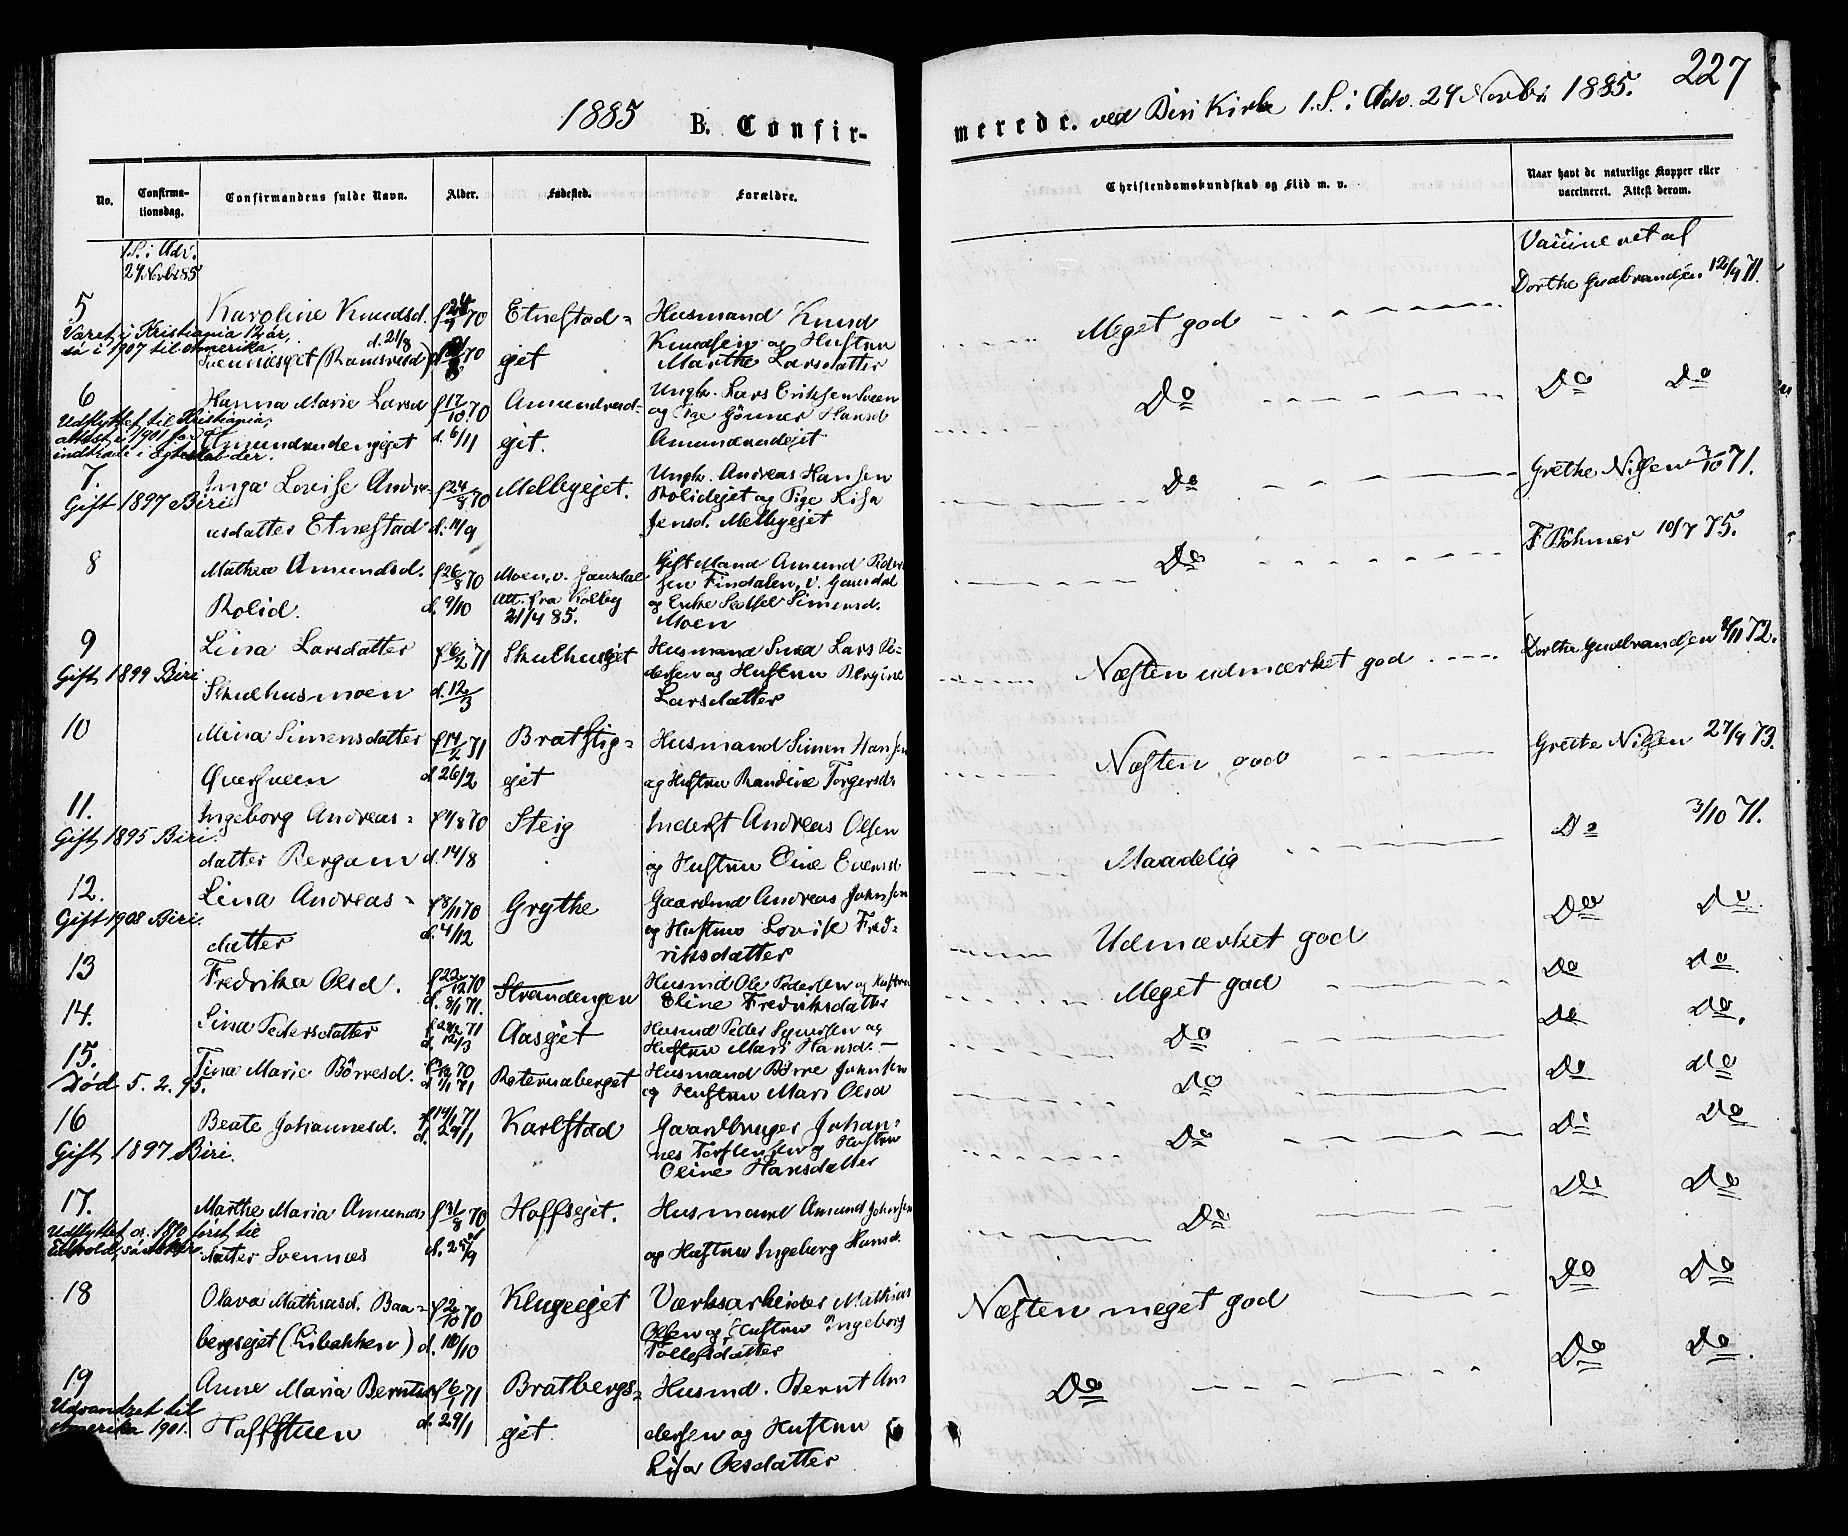 227
1885 B. Confir-
merede. ved Biri Kirke 1. S. i Adv. 29 Novbr. 1885.
No.
Confirma-
tionsdag.
Confirmandens fulde Navn.
Alder.
Fødested.
Forældre.
Christendomskundskab og Flid m. v.
Naar havt de naturlige Kopper eller
vaccineret. Attest derom.
1. S. i Adv.
29 Novbr 85
Vaccineret af
Dorthe Gudbrandsen 12/9 71.
5 Karoline Knudsd. Etnestad- Husmand Knud
Været i Kristiania 12 år,
så i 1907 til Amerika
d. 21/8
ejet Knudsen og Hustru
Marthe Larsdatter
Meget god
6 Hanna Marie Larsd f 17/10 70 Amundrud- Ungk. Lars Eriksen Sveen
Udflyttet til Kristiania.
og Pige Gønner Hansd
Amundrudejet d. 6/11 ejet. Amundrudejet
indtræde i Egteskab der.
Do Do Do
7. Inga Lovise Andre- f 24/8 70 Melbyejet. Ungk. Andreas Hansen
Gift 1897 Biri
Rolidejet og Pige Lisa
asdatter Etnestad d. 11/9 Jensd. Melbyejet
Do Grethe Nilsen 71.
8 Mathea Amundsd. f 26/8 70 Moen, v. Gausdal Gift Mand Amund Peder-
sen Findalen, V. Gausdal
Rolid. d. 9/10 Att. fra Kolbu
21/4 85. og Enke Sidsel Simensd.
Moen
Do F Böhmer 10/7 75.
9 Lina Larsdatter f 6/2 71 Skulhusejet Husmand Smed Lars Pe-
Gift 1899 Biri
dersen og Hustru Bergine
Skulhusmoen d. 12/3 Larsdatter
Næsten udmærket god Dorthe Gudbrandsen 2/11 72.
10 Mina Simensdatter f 14/2 71 Bratstig- Husmand Simen Hansen
Øversveen d. 26/2 ejet og Hustru Randine Torgersdr
Næsten god Grethe Nilsen 27/9 73.
11. Ingeborg Andreas- 70 Steig Inderst Andreas Olsen
Gift 1895 Biri.
datter Bergum d. 14/8 og Hustru Eline Evensd
Maadelig Do 3/10 71.
12. Lina Andreas- f 8/11 70 Grythe Gaardmd Andreas Johnsen
Gift 1908 Biri.
datter d. 4/12 og Hustru Lovise Fred-
riksdatter
Udmærket god Do Do
13 Fredrika Olsd. f 22/12 70 d. 8/1 71. Strandengen Husmd Ole Pedersen og Hustru
Eline Fredriksdatter
Meget god Do Do.
14. Sina Pedersdatter 71 d. 12/3 Aasejet Husmd Peder Syversen og
Hustru Mari Hansd.
Do Do Do.
15. Tina Marie Børresd. 70 71 Reternaberget Husmand Børre Johnsen
Død 5. 2. 95. og Hustru Mari Olsd
Do Do Do
16 Beate Johannesd. f 14/1 71 d. 29/1 Karlstad Gaardbruger Johan-
Gift 1897 Biri.
nes Torstensen og Hustru
Oline Hansdatter
Do Do Do
17. Marthe Maria Amunds- f 31/8 70 Hoffsejet. Husmand Amund Johnsen
Udflyttet ca. 1890 først til
datter Svennæs d. 25/9 og Hustru Ingeborg Hansd.
Do Do Do
18 Olava Mathiasd. Baa- f 2/10 70 Klugeejet Værksarbeider Mathias
bergsejet (Libakken) Olsen og Hustru Ingeborg
Tollefsdatter
Næsten meget god Do Do
19 Anne Maria Berntsd f 6/1 71 Bratbergs- Husmd. Bernt An-
Udvandret til
Amerika 1901.
Hoffstuen d. 29/1 ejet. dersen og Hustru
Lisa Olsdatter
Do Do Do.